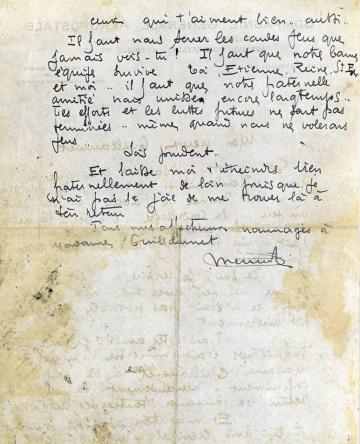 ceux qui t'aiment bien.. aussi..
Il faut nous serrer les coudes plus que
jamais vois-tu ! Il faut que notre bonne
équipe survive toi, Etienne, Reine, St Ex
et moi.. il faut que notre fraternelle
amitié nous unisse encore longtemps..
Les efforts et les luttes futures ne sont pas
terminées.. même quand nous ne volerons
plus
Sois prudent..
Et laisse moi t'étreindre bien
fraternellement de loin puisque je
n'ai pas la joie de me trouver là à
ton retour
Tous mes affectueux hommages à
Madame Guillaumet
Mermoz